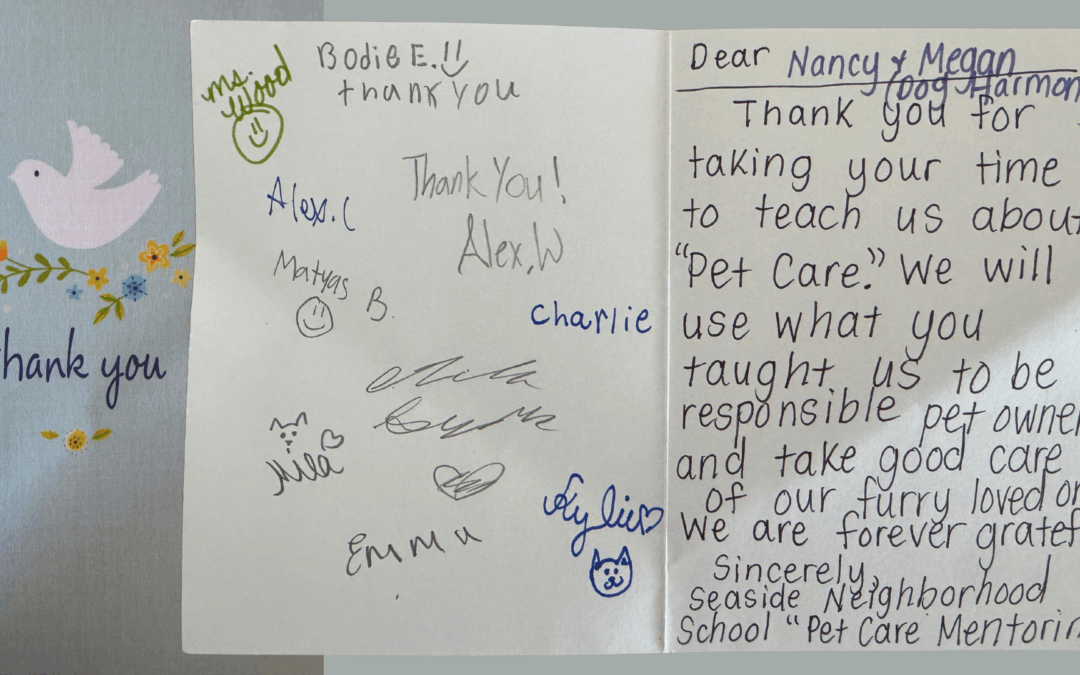 hank you
Ms.
Wood
Bodie E.!!
thank you
Thank You!
Alex.W
Alex.C
Matyas
B.
Charlie
Mila
Kylie
Emma
Dear Nancy & Megan
/Dog Harmon
Thank you for
taking your time
to teach us about
"Pet Care." We will
use what you
taught us to be
responsible pet owner
and take good care
of our furry loved on
We are forever gratef
Sincerely,
Seaside Neighborhood
School "Pet Care Mentorin